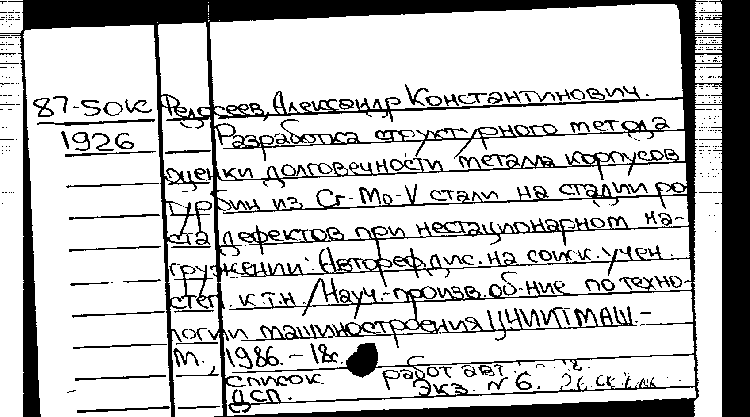 87-50к Федосеев, Александр Константинович.
1926 Разработка структурного метода
оценки долговечности металла корпусов
турбин из Cr-Mo-V стали на стадии ро
ста дефектов при нестационарном на-
гружении: Автореф. дис. на соиск. учен.
степ. к.т.н. / Науч.-произв. об-ние по техно-
логии машиностроения ЦНИИТМАШ. -
М., 1986. - 18с.
список работ авт.
ДСП. Экз. N 6.